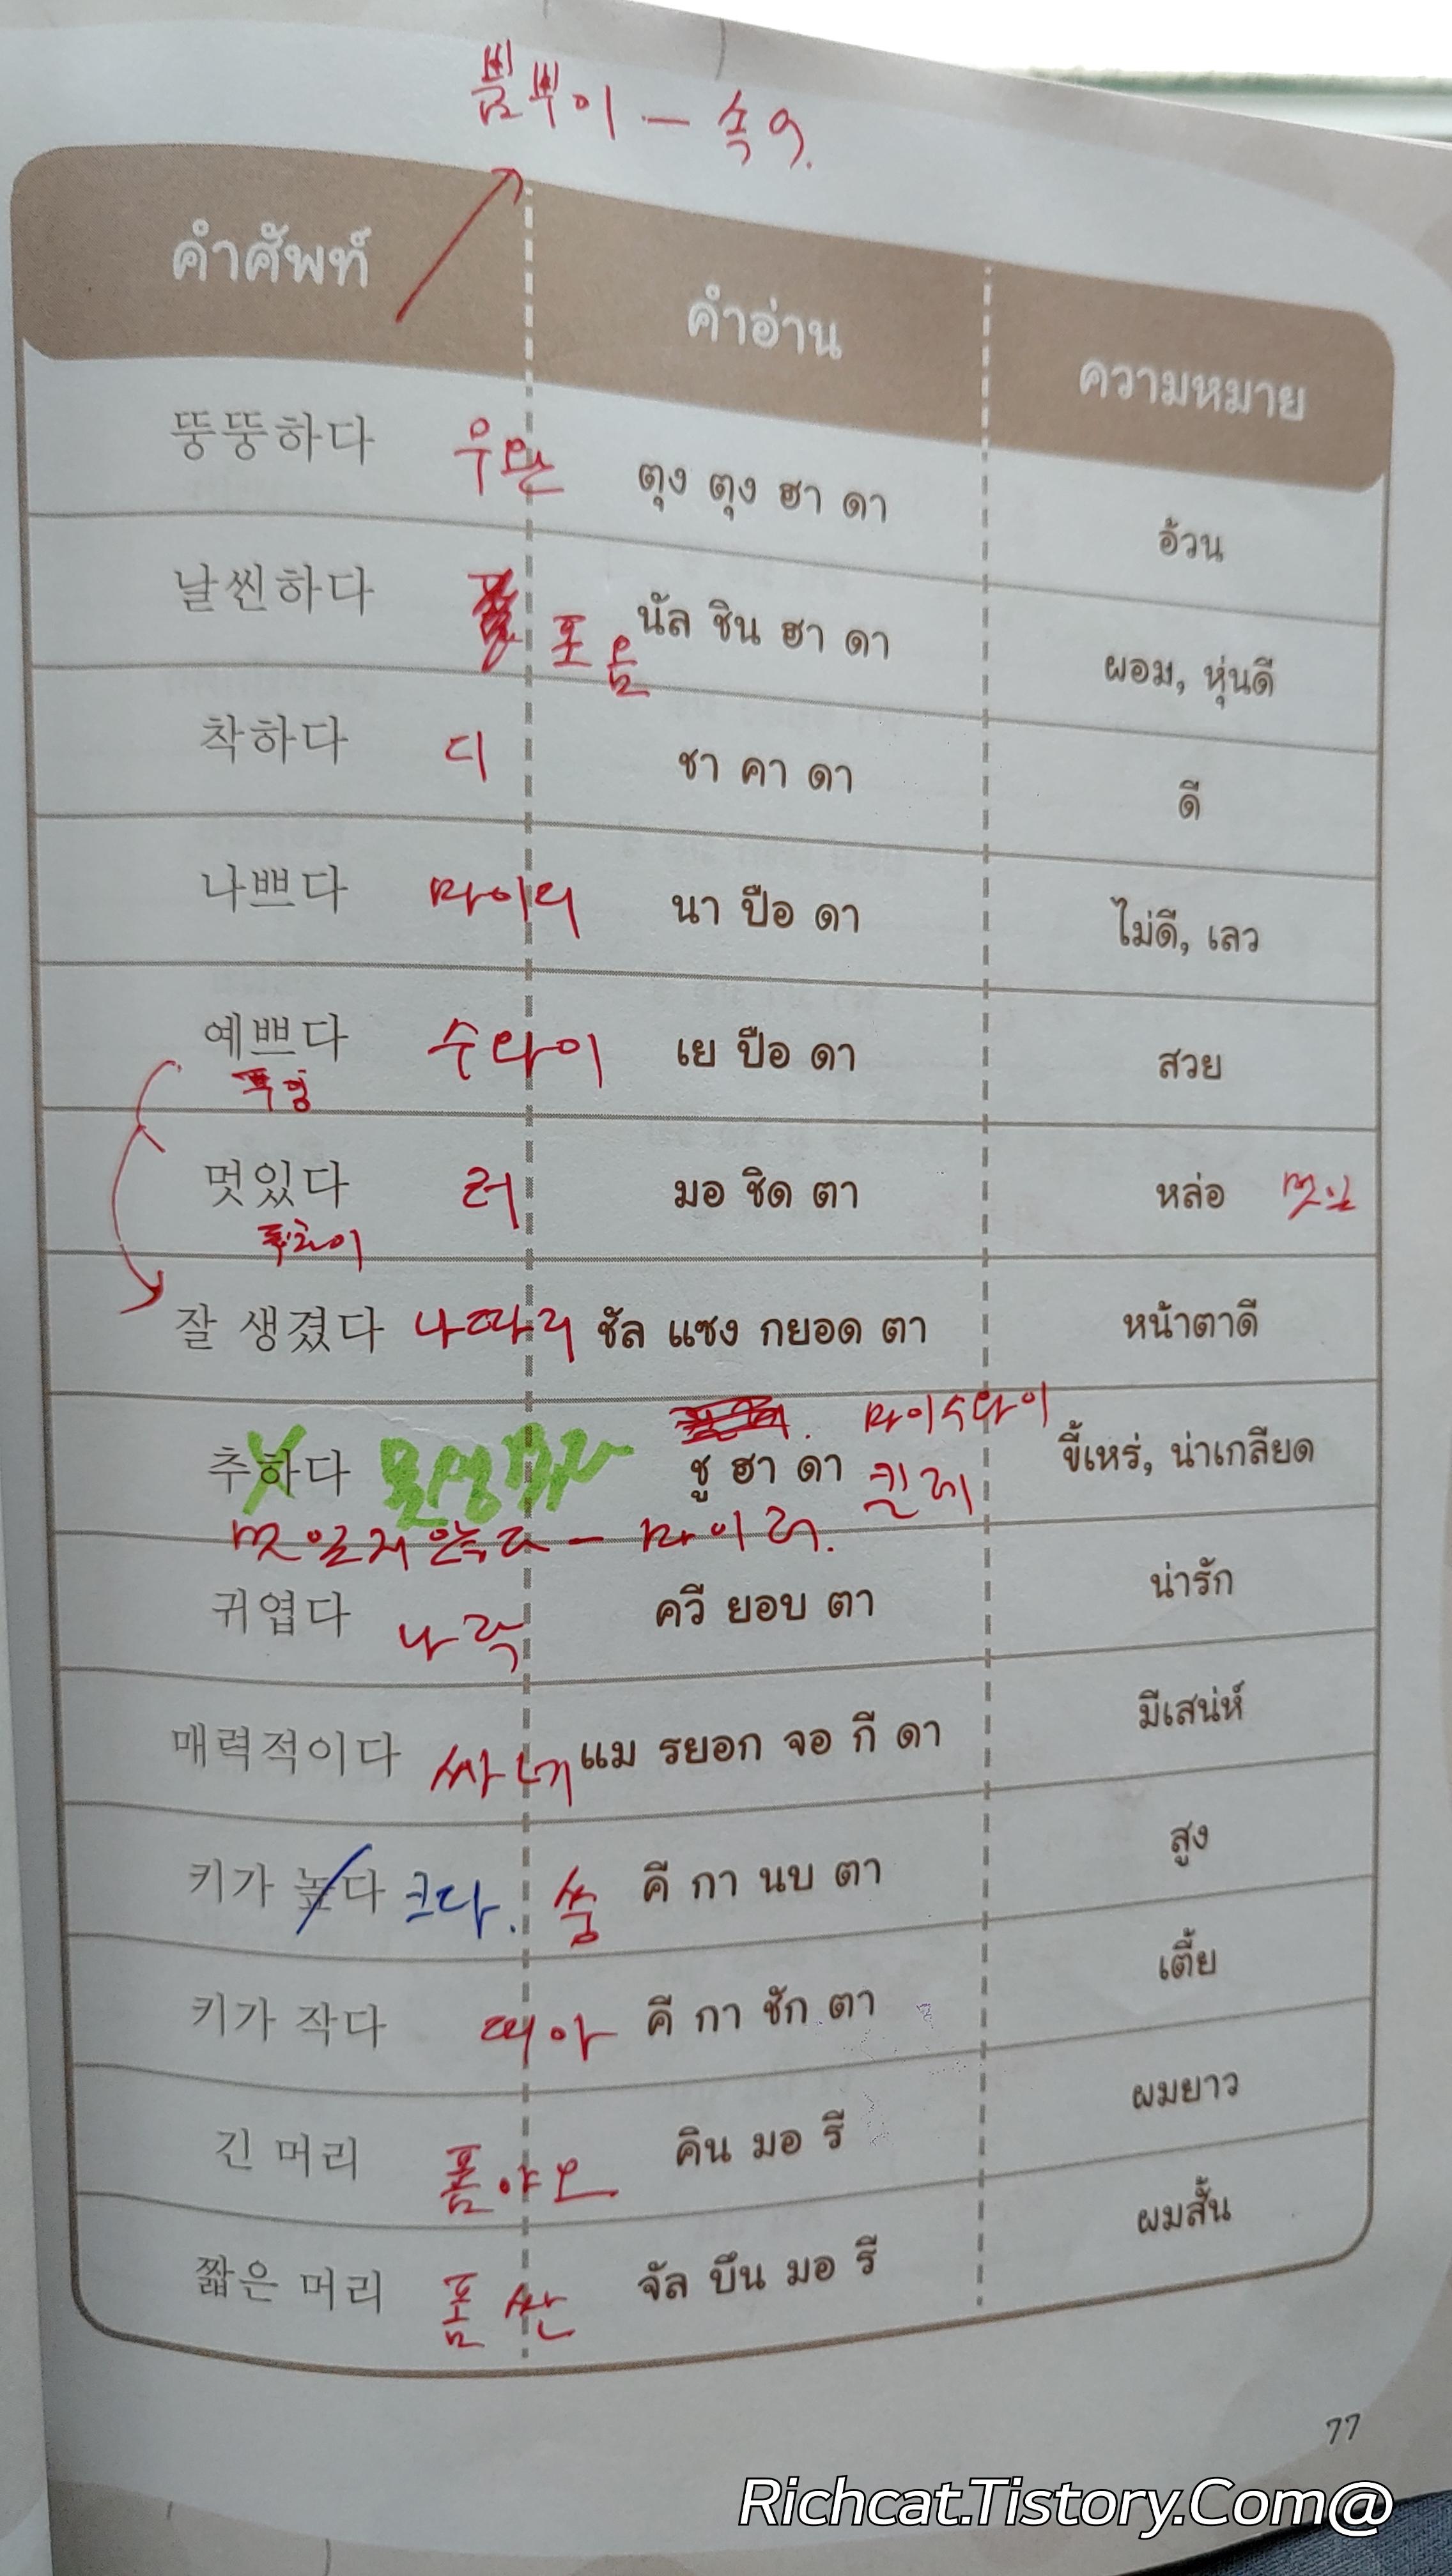 뿜뿌이 - 속어.
คำศัพท์ คำอ่าน ความหมาย
뚱뚱하다 우완 ตุง ตุง ฮา ดา อ้วน
날씬하다 포옴 นัล ชิน ฮา ดา ผอม, หุ่นดี
착하다 디 ชา คา ดา ดี
나쁘다 마이디 นา ปือ ดา ไม่ดี, เลว
예쁘다 수와이 เย ปือ ดา สวย
멋있다 러 มอ ชิด ตา หล่อ
잘 생겼다 나따디 ชัล แซง กยอด ตา หน้าตาดี
마이수와이
추하다 못생겼다 ชู ฮา ดา ขี้เหร่, น่าเกลียด
킬레
마이러.
귀엽다 나락 ควี ยอบ ตา น่ารัก
매력적이다 싸네 แม รยอก จอ กี ดา มีเสน่ห์
키가 높다 크다. 쑹 คี กา นบ ตา สูง
키가 작다 떠아 คี กา ชัก ตา เตี้ย
긴 머리 폼야오 คิน มอ รี ผมยาว
짧은 머리 폼싼 จัล บึน มอ รี ผมสั้น
77
Richcat.Tistory.Com@